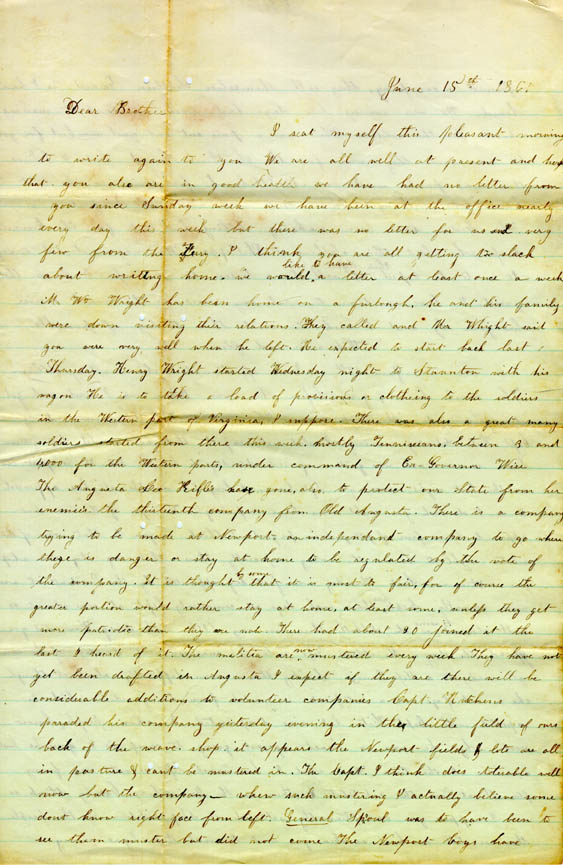 June 15th 1861
Dear Brother
I seat myself this pleasant morning
to write again to you We are all well at present and hop
that you also are in good health we have had no letter from
you since Sunday week we have been at the office nearly
every day this week but there was no letter for us and very
few from the Ferry. I think you are all getting to slack
like to have
about writting home. we would a letter at least once a week
Mr Wm Wright has been home on a furlough, he and his family
were down visiting their relations. They called and Mr Whright said
you were very well when he left. He expected to start back last
Thursday. Henry Wright started Wednesday night to Staunton with his
wagon He is to take a load of provisions or clotheing to the soldiers
in the Western part of Virginia, I suppose. There was also a great many
soldiers started from there this week. mostly Tennisseans, between 3 and
4000 for the Western parts, under command of Ex-Governor Wise
The Augusta Lee Rifles have gone, also, to protect our State from her
enemies the thirteenth company from Old Augusta. There is a company
trying to be made at Newport, an independant company to go where
there is danger or stay at home to be regulated by the vote of
by some
the company. It is thought that it is most to fair, for of course the
greater portion would rather stay at home, at least some, unless they get
more patriotic than they are now. There had about 20 joined at the
last I heard of it. The melitia are now mustered every week They have not
yet been drafted in Augusta I expect if they are there will be
considerable additions to volunteer companies Capt. Hutchens
paraded his company yesterday evening in the little field of ours
back of the weave shop. it appears the Newport fields & lots are all
in pasture & cant be mustered in. The Capt. I think does tolerable well
now but the company— where such mustering I actually believe some
dont know right face from left. General Skoul was to have been to
see them muster but did not come The Newport boys have